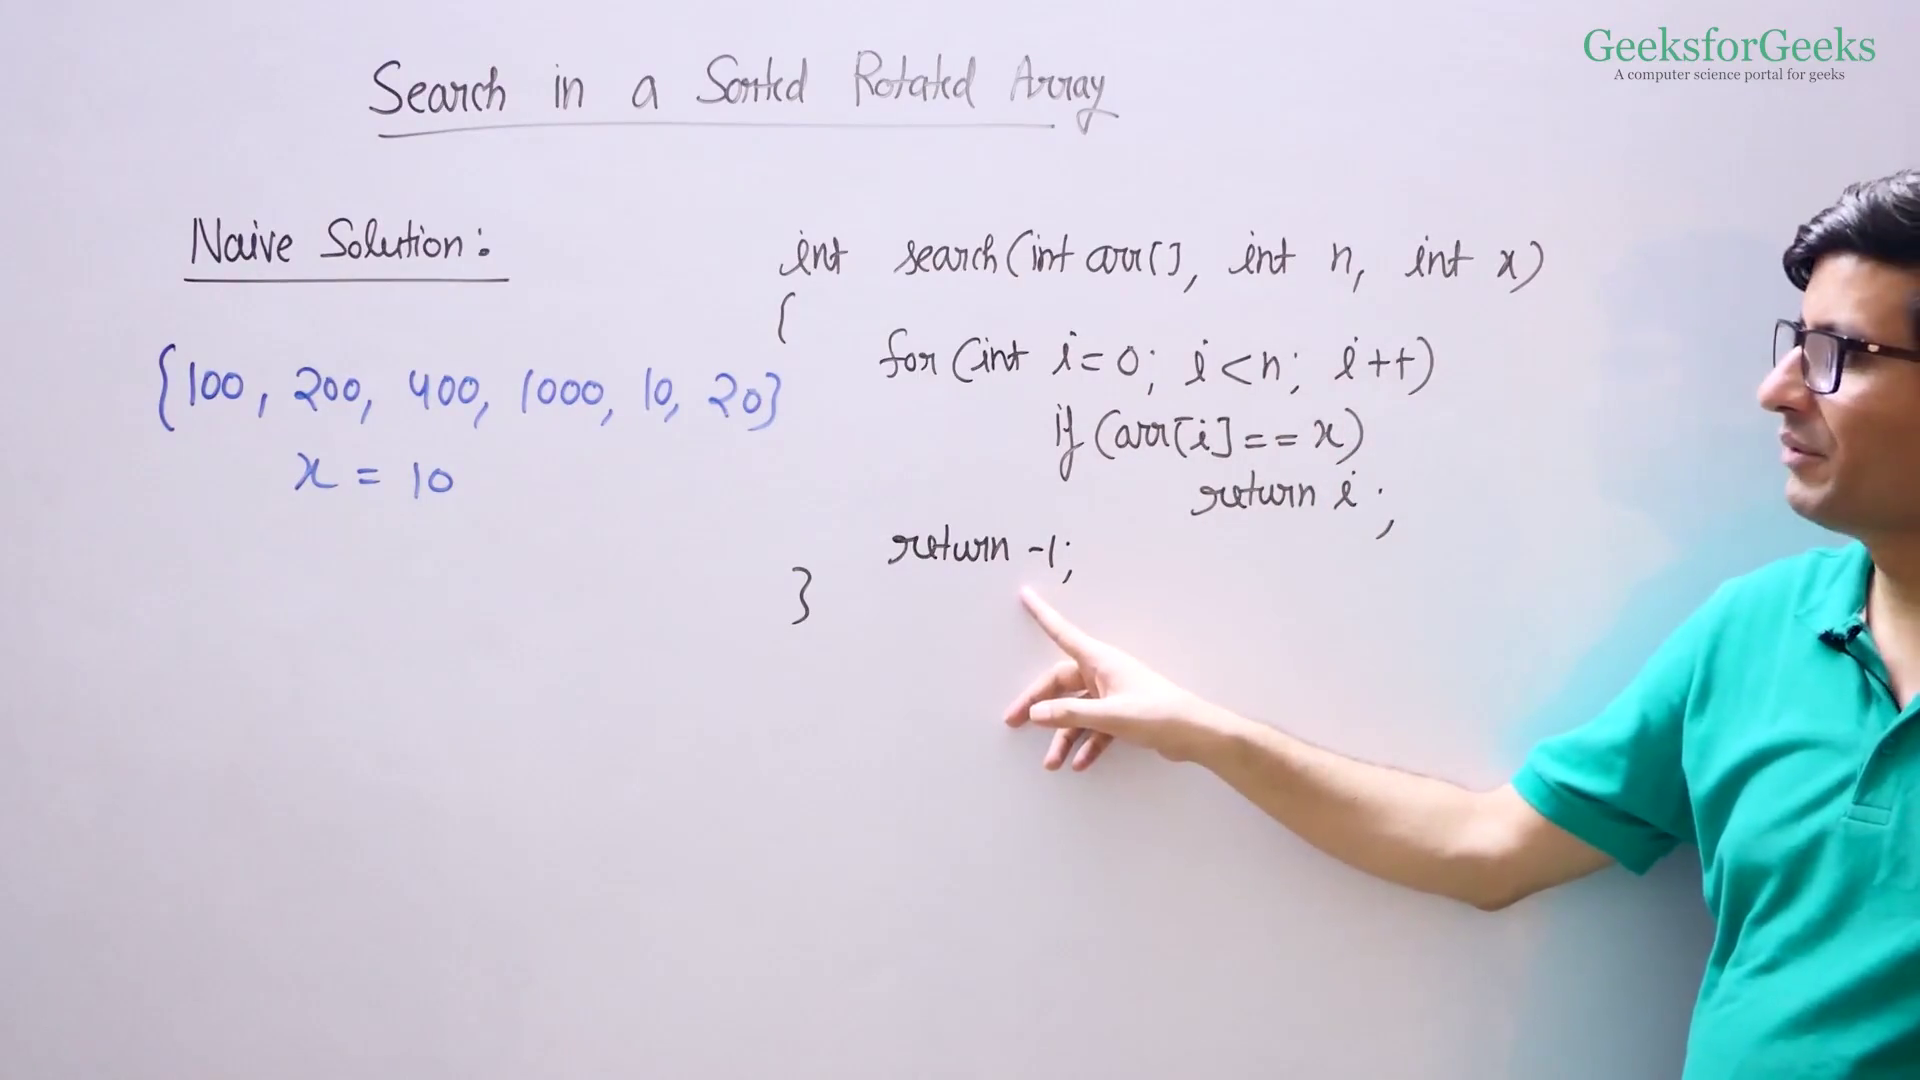 GeeksforGeeks
A computer science portal for geeks
Search in a Sorted Rotated Array
Naive Solution:
{100, 200, 400, 1000, 10, 20}
x = 10
int search(int arr[], int n, int x)
{
for(int i=0; i<n; i++)
if(arr[i]==x)
return i;
return -1;
}